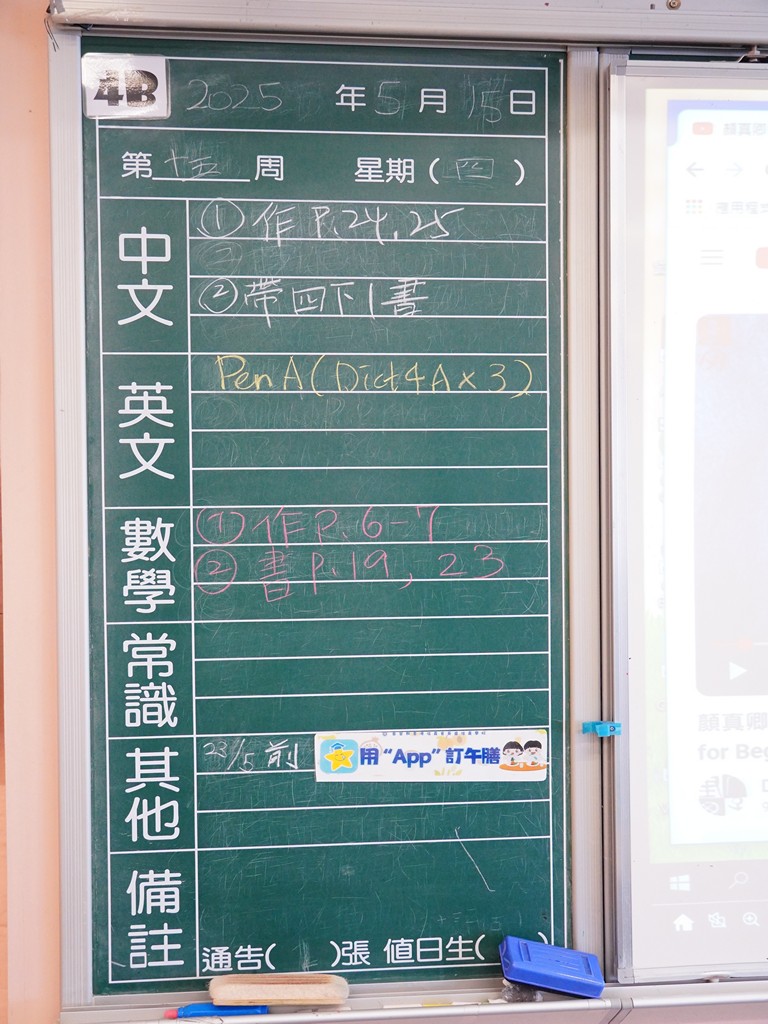 4B
2025 年 5 月 15 日
第 十五 周 星期 ( 四 )
中文
① 作 P.24,25
② 帶四下1書
英文
Pen A (Dict 4A x 3)
數學
① 作 P. 6-7
② 書 P.19, 23
常識
其他
23/5 前
用 “App” 訂午膳
備註
通告( )張 值日生( )
顏真卿
應用程式
顏真卿
for Beg